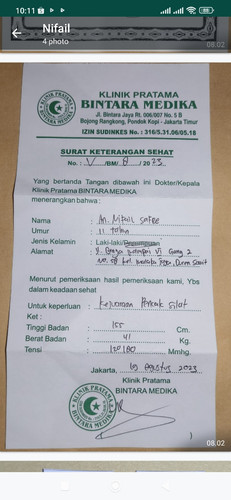 10:11
Nifail
4 photo
08.02
KLINIK PRATAMA
BINTARA MEDIKA
Jl. Bintara Jaya Rt. 006/007 No. 5 B
Bojong Rangkong, Pondok Kopi - Jakarta Timur
IZIN SUDINKES No : 316/5.31.06.05.18
SURAT KETERANGAN SEHAT
No. : V /BM/ 8 / 2023
Yang bertanda Tangan dibawah ini Dokter/Kepala
Klinik Pratama BINTARA MEDIKA
menerangkan bahwa :
Nama : An. Nifail
Umur : 11 tahun
Jenis Kelamin : Laki-laki/Perempuan
Alamat : VI Gang 2
Menurut pemeriksaan hasil pemeriksaan kami, Ybs
dalam keadaan sehat
Untuk keperluan : Pencak Silat
Ket :
Tinggi Badan : 155 Cm.
Berat Badan : 41 Kg.
Tensi : Mmhg.
Jakarta, Agustus 2023
Klinik Pratama
BINTARA MEDIKA
( )
08.02